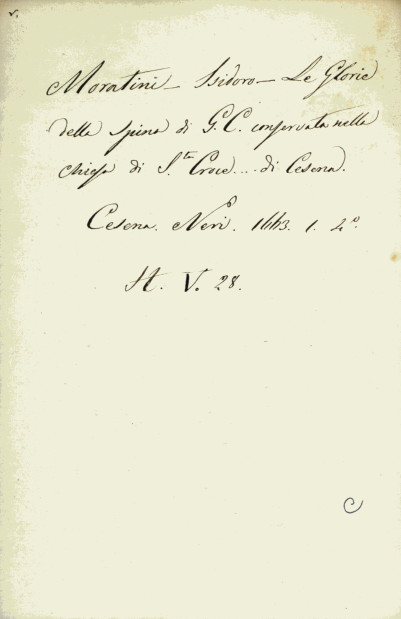 v.
Moratini – Isidoro – Le Glorie
della spina di G. C. conservata nella
chiesa di S.ta Croce ... di Cesena.
Cesena. Neri. 1663. 1. 4º.
It. V. 28.
C